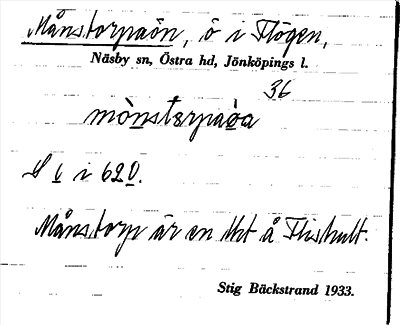 Månstorpaön, ö i Flögen,
Näsby sn, Östra hd, Jönköpings l.
36
mònsterpaòa
S ö i 620.
Månstorp är en tht å Flishult.
Stig Bäckstrand 1933.